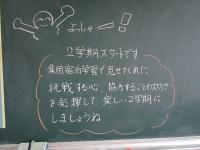 よっしゃー!
2学期スタートです
集団宿泊学習で見せてくれた
挑戦する心、協力することの大切さ
を発揮して楽しい2学期に
しましょうね